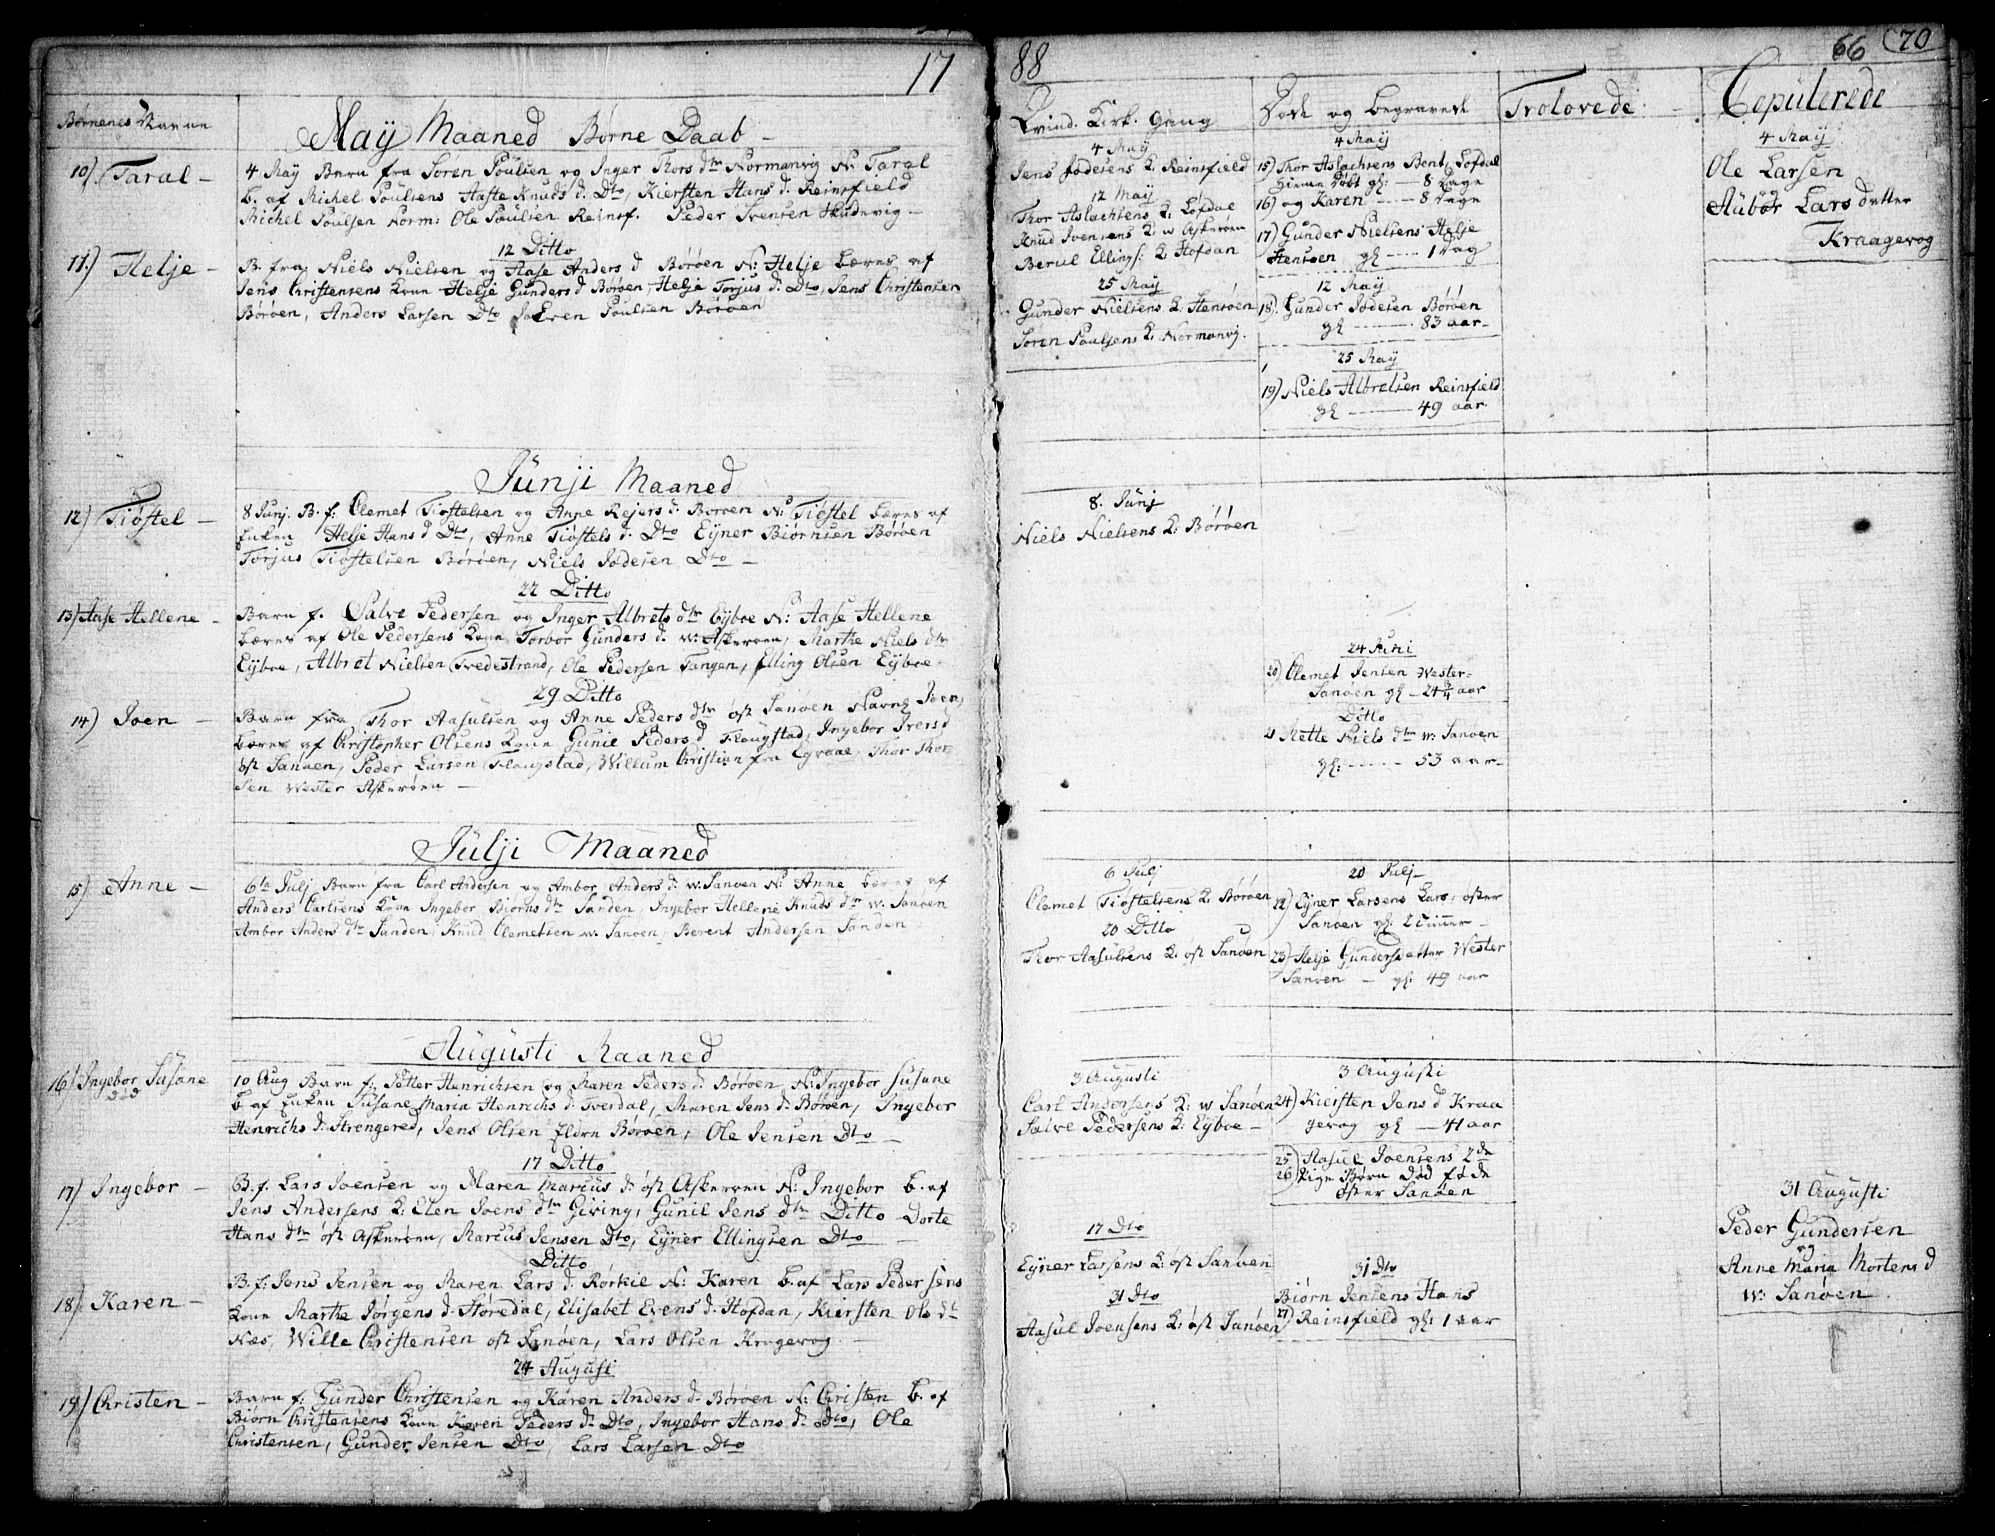 17
Børnenes Navne
May Maaned Børne Daab
10) Taral
4 May Barn fra Søren Poulsen og Inger Thors dtr Normanvig N: Taral
b. af Michel Poulsens Aaste Knuds d. Dto, Kiersten Hans d. Reinsfield
Michel Poulsen Norm: Ole Poulsen Reinsf. Peder Svensen Skudevig
12 Ditto
11.) Helje
B. fra Niels Nielsen og Aase Anders d Børøen N: Helje bæres af
Jens Christensens Kone Helje Gunders d Børøen, Helje Torjus d. Dto, Jens Christensen
Børøen, Anders Larsen Dto Poulsen Børøen
Junji Maaned
12) Tiøstel
8 Junj. B. f. Clemet Tiøstelsen og Anne Rejers d. Børøen N: Tiøstel bæres af
Enken Helje Hans d Dto, Anne Tiøstels d. Dto Ejner Biørnsen Børøen
Torjus Tiøstelsen Børøen, Niels Jødesen Dto
22 Ditto
13) Aase Hellene
Barn f. Salve Pedersen og Inger Albrets dtr Eyboe N: Aase Hellene
bæres af Ole Pedersens Kone Torbor Gunders d. w: Askerøen, Marthe Niels dtr
Eyboe, Albret Nielsen Tvedestrand, Ole Pedersen Tangen, Elling Olsen Eyboe
29 Ditto
14) Joen
Barn fra Thor Aasulsen og Anne Peders dtr øst Sanøen Navne Joen,
bæres af Christopher Olsens Kone Gunie Peders d Flougstad, Ingebor Ivers d
øst Sanøen, Peder Larsen Flougstad, Willum Christian fra Egvaae, Thor Thor
sen Wester Askerøen
Julji Maaned
15) Anne
6te Julj Barn fra Carl Andersen og Ambor Anders d: w: Sanøen N: Anne bæres af
Anders Carlsens Kone Ingebor Biørns dtr Sanden, Ingebor Hellene Knuds dtr w. Sanøen
Ambor Anders dtr Sanden, Knud Clemetsen w. Sanøen, Berent Andersen Sanden
Augusti Maaned
16) Ingebor Susane
10 Aug Barn f: Petter Henrichsen og Maren Peders d: Børøen N: Ingebor Susane
b. af Enken Susane Maria Henrichs d: Tverdal, Maren Jens d: Børøen, Ingebor
Henrichs d: Strengered, Jens Olsen Eldre Børøen, Ole Jensen Dto
17 Ditto
17) Ingebor
B. f. Lars Joensen og Maren Marcus d: øst Askerøen N: Ingebor b. af
Jens Andersens K: Elen Joens dtr Giving, Gunil Jens dtr Ditto Dorte
Hans dtr øst Askerøen, Marcus Jensen Dto, Eyner Ellingsen Dto
Ditto
18) Karen
B. f. Jens Jensen og Maren Lars d: Rørkie N: Karen b. af Lars Pedersens
Kone Marthe Jørgens d: Støredal, Elisabet Evens d: Hofdan, Kiersten Ols dt
Næs, Wille Christensen øst Sanøen, Lars Olsen Krogevog
24 Augusti
19) Christen
Barn f: Gunder Christensen og Karen Anders d: Børøen N: Christen b. af
Biørn Christensens Kone Karen Peders d: Dto, Ingebor Hans d: Dto, Ole
Christensen, Gunder Jensen Dto, Lars Larsen Dto
88
66
70
Qvind. Kirk. Gang
4 May
Jens Jødesens K: Reinsfield
12 May
Thor Aslachsens K: Lofdal
Knud Joensens K: w Askerøen
Berul Ellings: K Hofdan
25 May
Gunder Nielsens K: Stensøen
Søren Poulsens K: Normanvig.
8. Junj
Niels Nielsens K: Børøen
6 Julj
Clemet Tiøstelsens K: Børøen
20 Ditto
Thor Aasulsens K: øst Sanøen
3 Augusti
Carl Andersens K: w Sanøen
Salve Pedersens K: Eyboe
17 Dto
Eyner Larsens K: øst Sanøen
31 Dto
Aasul Joensens K: øst Sanøen
Døde og Begravede
4 May
15) Thor Aslachsens Bent, Lofdal
Hieme Døbt gl: 8 Dage
16) og Karen 8 Dage
17) Gunder Nielsens Helje
Stensøen gl 1 Dag
12 May
18) Gunder Jødesen Børøen
gl 83 aar
25 May
19) Niels Albretsen Reinsfield
gl 49 aar
24 Juni
20) Clemet Jensen Wester-
Sanøen gl 24 3/4 aar
Ditto
Mette Niels dtr w: Sanøen
gl: 53 aar
20 Julj
22) Eyner Larsens Lars, øster
Sanøen gl: 2 Timer
23) Helje Gundersdatter Wester
Sanøen gl: 49 aar
3 Augusti
24) Kiersten Jens d Kraa
gevog gl 41 aar
25) Aasul Joensens 2de
26) Pige Børn Død føde
øster Sanøen
31 Dto
Biørn Jensens Hans
27) Reinsfield gl: 1 aar
Trolovede
Copulerede
4 May
Ole Larsen
og
Aubør Larsdatter
Kraagevog
31 Augusti
Peder Gundersen
og
Anne Maria Mortens d
w: Sanøen